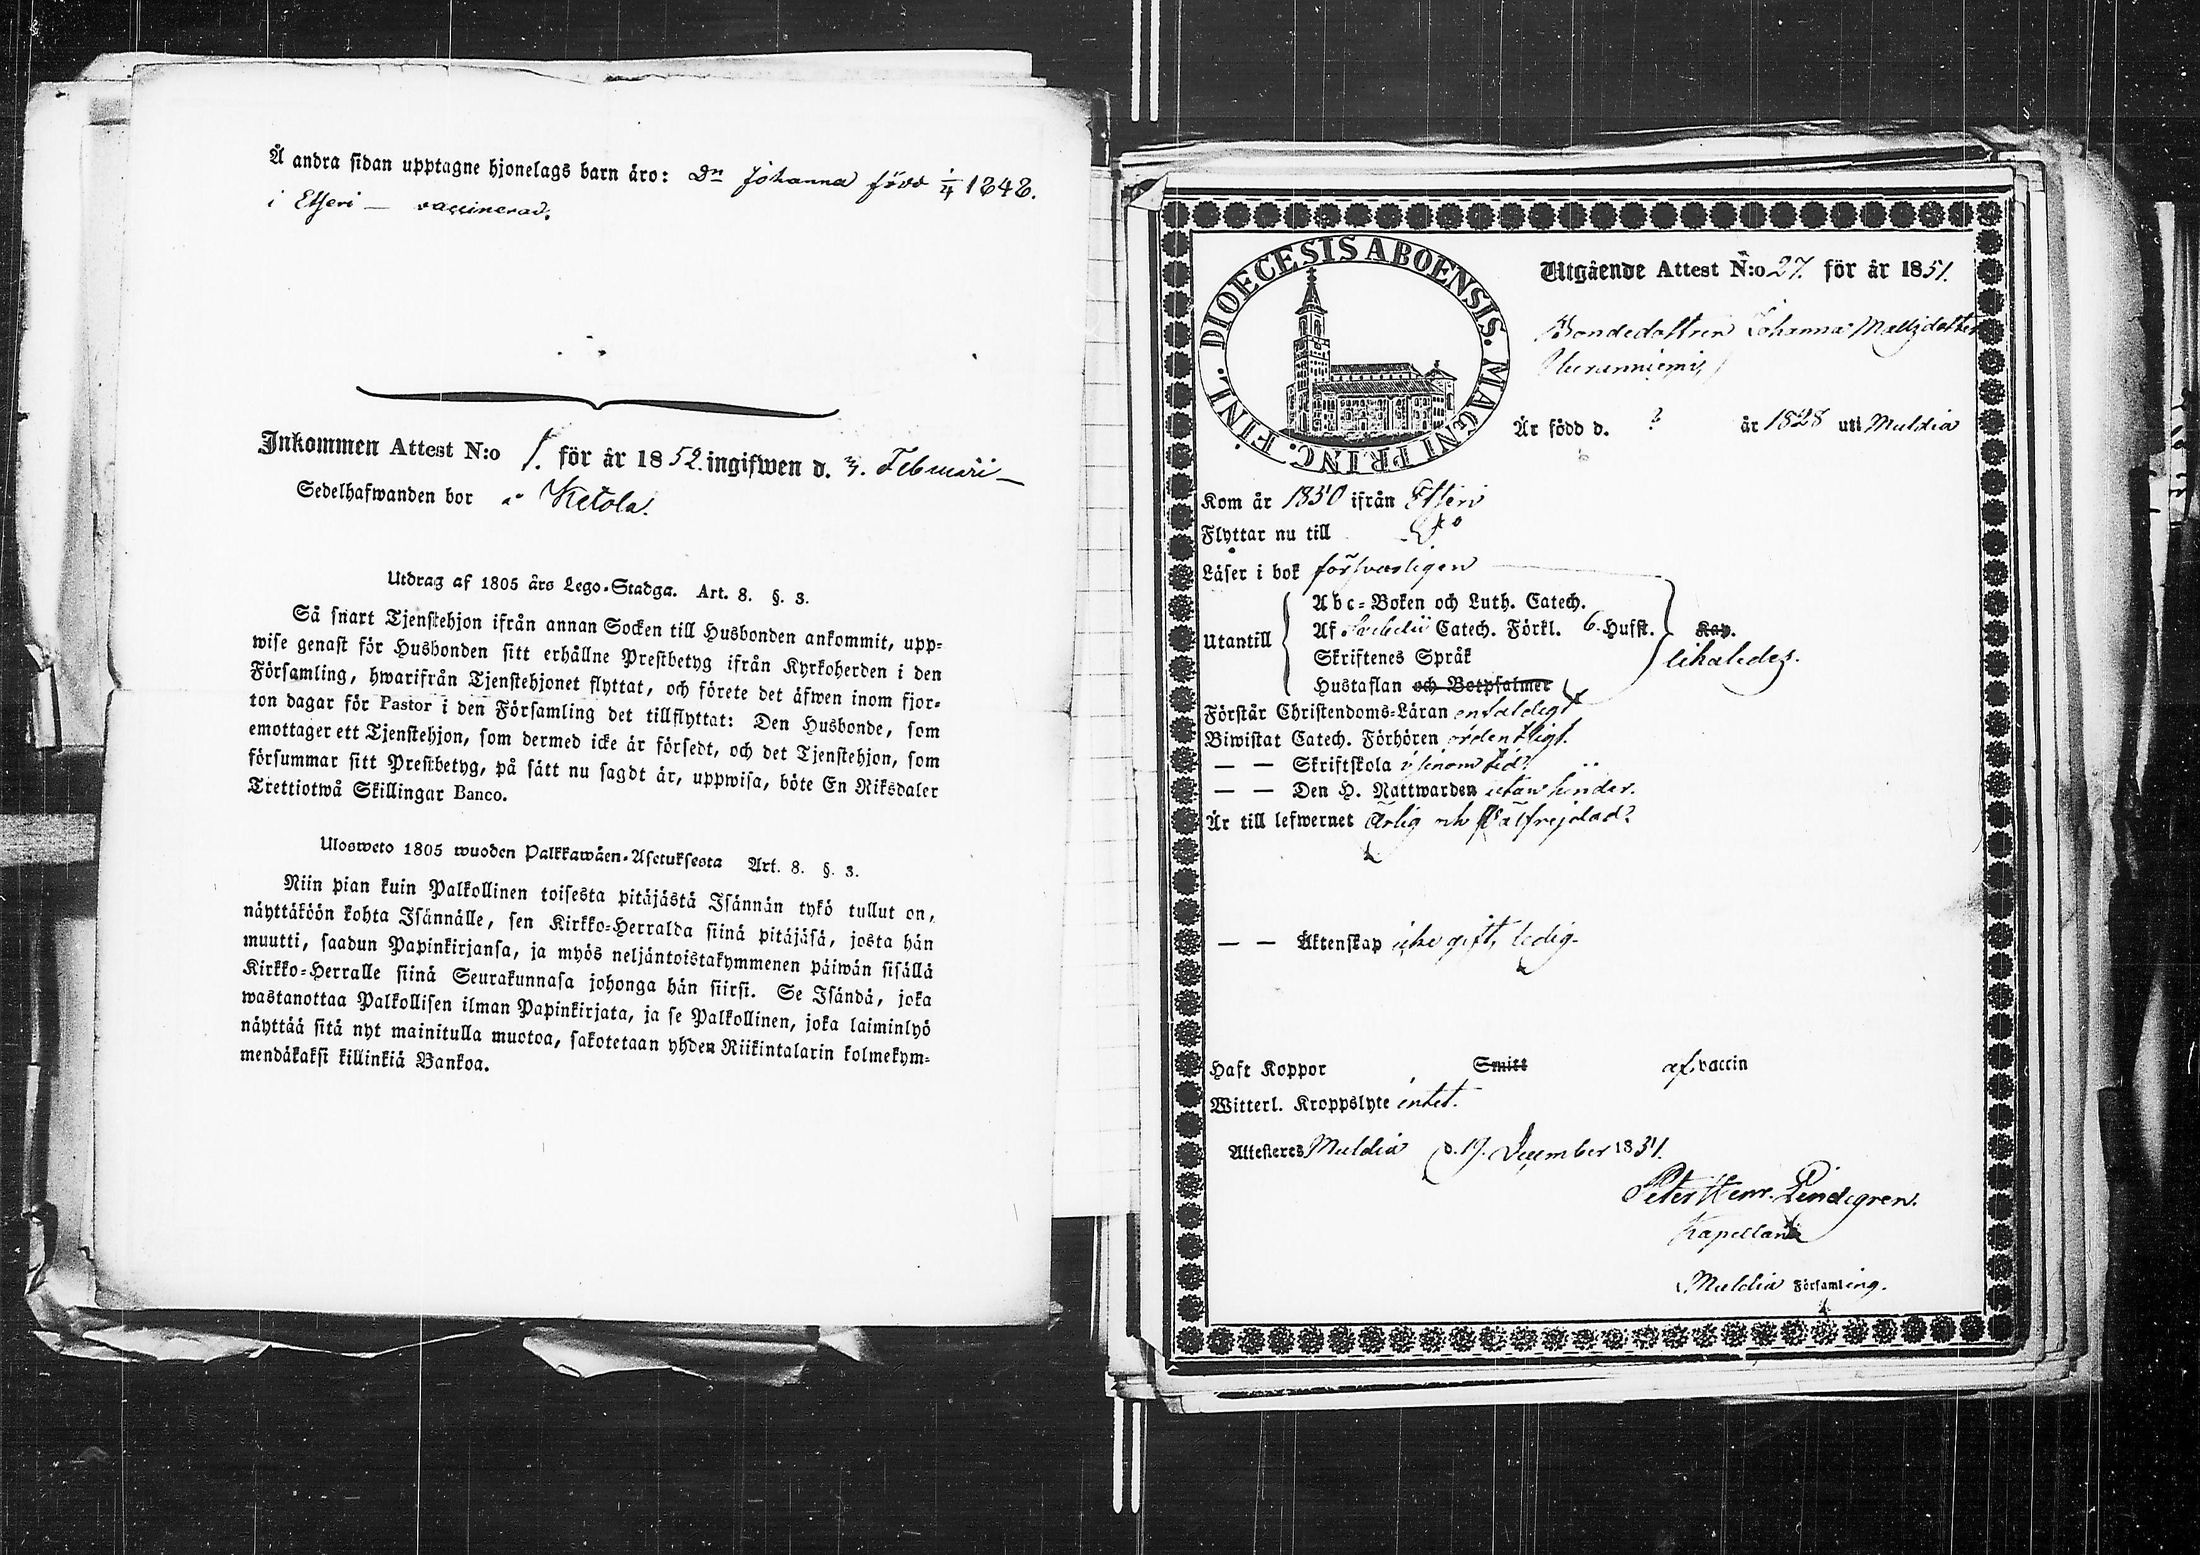 Å andra sidan upptagne hjonelags barn äro: Dr Johanna född 1/4 1848.
i Etseri — vaccinerad.
Inkommen Attest N:o 1. för år 1852. ingifwen d. 3. Februari —
Sedelhafwanden bor å Ketola.
Utdrag af 1805 års Lego-Stadga. Art. 8. §. 3.
Så snart Tjenstehjon ifrån annan Socken till Husbonden ankommit, upp-
wise genast för Husbonden sitt erhållne Prestbetyg ifrån Kyrkoherden i den
Församling, hwarifrån Tjenstehjonet flyttat, och förete det äfwen inom fjor-
ton dagar för Pastor i den Församling det tillflyttat: Den Husbonde, som
emottager ett Tjenstehjon, som dermed icke är försedt, och det Tjenstehjon, som
försummar sitt Prestbetyg, på sätt nu sagdt är, uppwisa, böte En Riksdaler
Trettiotwå Skillingar Banco.
Ulosweto 1805 wuoden Palkkawäen-Asetuksesta Art. 8. §. 3.
Niin pian kuin Palkollinen toisesta pitäjästä Isännän tykö tullut on,
näyttäköön kohta Isännälle, sen Kirkko-Herralda siinä pitäjäsä, josta hän
muutti, saadun Papinkirjansa, ja myös neljäntoistakymmenen päiwän sisällä
Kirkko-Herralle siinä Seurakunnasa johonga hän siirsi. Se Isändä, joka
wastanottaa Palkollisen ilman Papinkirjata, ja se Palkollinen, joka laiminlyö
näyttää sitä nyt mainitulla muotoa, sakotetaan yhden Riikintalarin kolmekym-
mendäkaksi killinkiä Bankoa.
DIOECESIS ABOENSIS. MAGNI PRINC. FINL.
Utgående Attest N:o 27. för år 1851.
Bondedottren Johanna Mattsdotter
Är född d. ? år 1828 uti Muldia
Kom år 1850 ifrån Etseri
Flyttar nu till do
Läser i bok försvarligen
Abc-Boken och Luth. Catech.
Utantill Af Svebelii Catech. Förkl. 6. Hufst. Kap.
Skriftenes Språk likaledes.
Hustaflan och Botpsalmer
Förstår Christendoms-Läran enfaldigt
Biwistat Catech. Förhören ordentligt.
— — Skriftskola i sinom tid.
— — Den H. Nattwarden utan hinder.
Är till lefwernet Ärlig och Välfrejdad.
— — Äktenskap icke gift, ledig.
Haft Koppor Smitt af vaccin
Witterl. Kroppslyte intet.
Attesteres Muldia d. 19. December 1851.
Peter Henr. Lindegren.
Kapellan
i Muldia Församling.